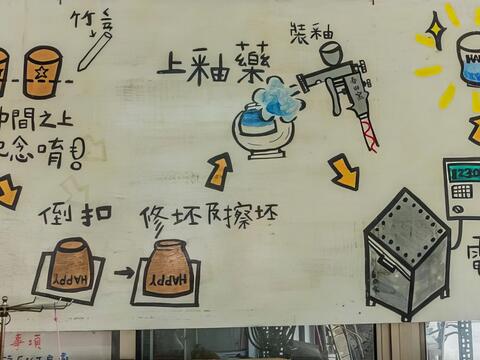 竹
裝釉
上釉藥
中間之上
紀念唷!
倒扣
修坯及擦坯
HAPPY
HAPPY
1230
電
事項